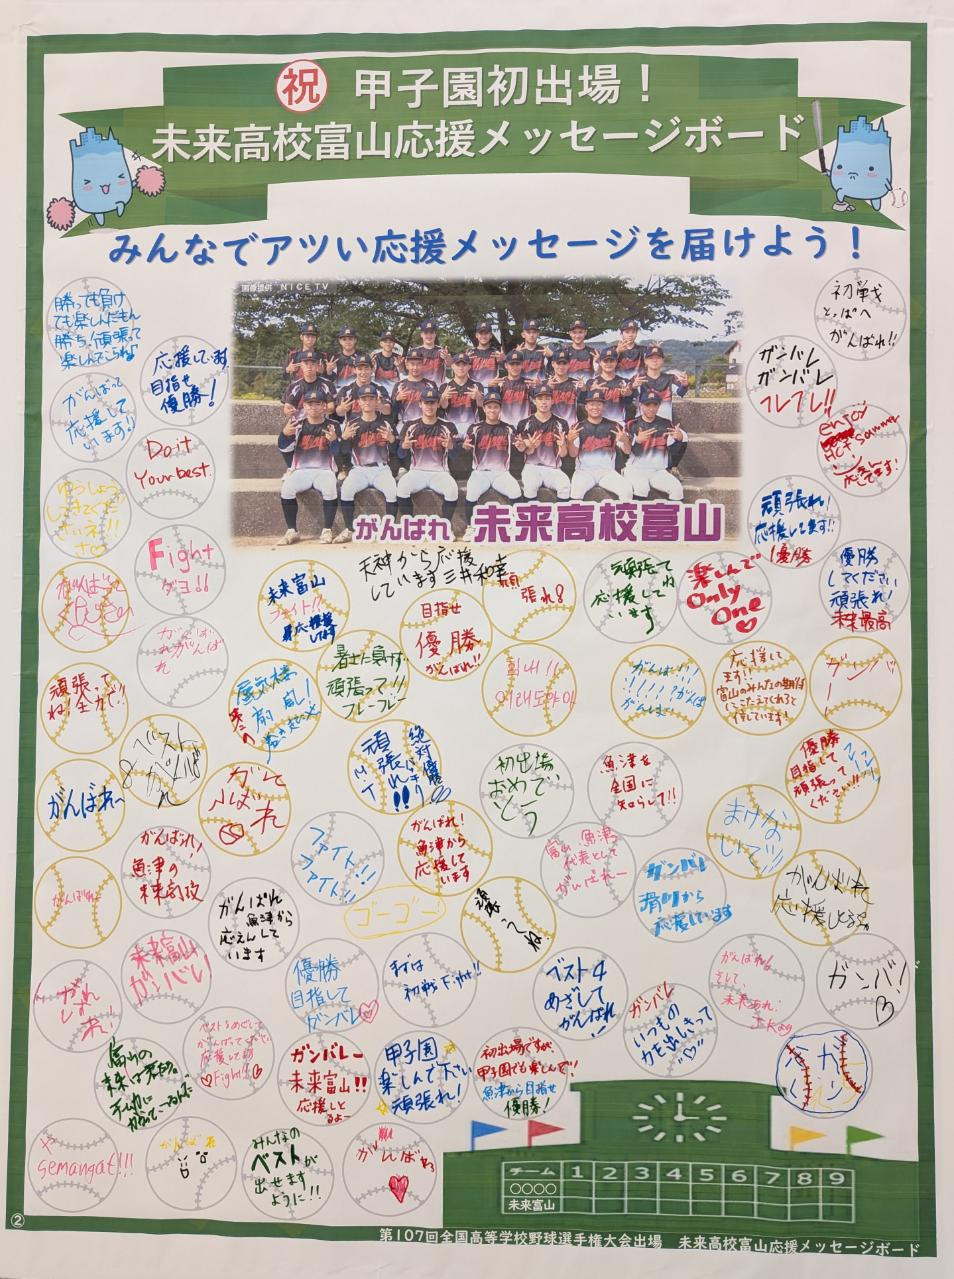 祝 甲子園初出場！
未来高校富山応援メッセージボード
みんなでアツい応援メッセージを届けよう！
画像提供 NICE TV
がんばれ 未来高校富山
勝っても負け
ても楽しんだもん
勝ち!頑張って
楽しんでこらね♪
応援しています
目指せ
優勝!
がんばって
応援して
います!!
Do it
Your best.
ゆうしょう
してきてくだ
さいネ!!
Fight
ダヨ!!
がんば
れがんば
れ
頑張って
ね!
全力で!!
初戦
とっぱへ
がんばれ!!
ガンバレ
ガンバレ
フレフレ!!
enjoy
HOT summer
応えん
してます!
頑張れ!
応援してます!!
優勝
優勝
してください
頑張れ!
未来最高
天神から応援
しています 三井和幸
未来富山
ファイト!!
目指せ
優勝
がんばれ!!
頑
張れ!
頑張って
ね
応援して
います
楽しんで
Only
One
暑さに負けず
頑張って!!
フレーフレー
힘내!!
がんば!!!
応援して
ます!!
富山のみんなの期待
にこたえてくれると
信じています!
ガンバ
ー
ベスト
8
がんば
れ
がんばれ〜
がんばれ
頑張れ!!
絶対優勝
初出場
おめで
とう
魚津を
全国に
知らして!!
優勝
目指して
頑張って
ください!!!
がんばれ!
魚津の
未来高校
ファイト
ファイト!!
がんばれ!
魚津から
応援して
います
富山 魚津
代表として
がんばれー
まけな
いで!!
がんばれ
がんばれ
魚津から
応えんして
います
ゴーゴー
頑張ってね!
ガンバレ
滑川から
応援しています
がんばれ
応援しとるよ
がんばれ!
未来富山
ガンバレ!
優勝
目指して
ガンバレ
まずは
初戦 Fight!!
ベスト4
めざして
がんばれ!
ガンバレ
いつもの
力を出しきって
がんばれ!
そして、
未来あれ!
ガンバ!
富山の
未来は君たち。
ベスト8めざして
がんばってください
応援してます
Fight!
ガンバレー
未来富山!!
応援しと
るよー
甲子園
楽しんで下さい
頑張れ!
初出場ですが、
甲子園でも楽しんで!!
魚津から目指せ
優勝!
semangat!!!
がんばれ
みんなの
ベストが
出せます
ように!!
がんばれ
チーム 1 2 3 4 5 6 7 8 9
○○○○
未来富山
②
第107回全国高等学校野球選手権大会出場 未来高校富山応援メッセージボード